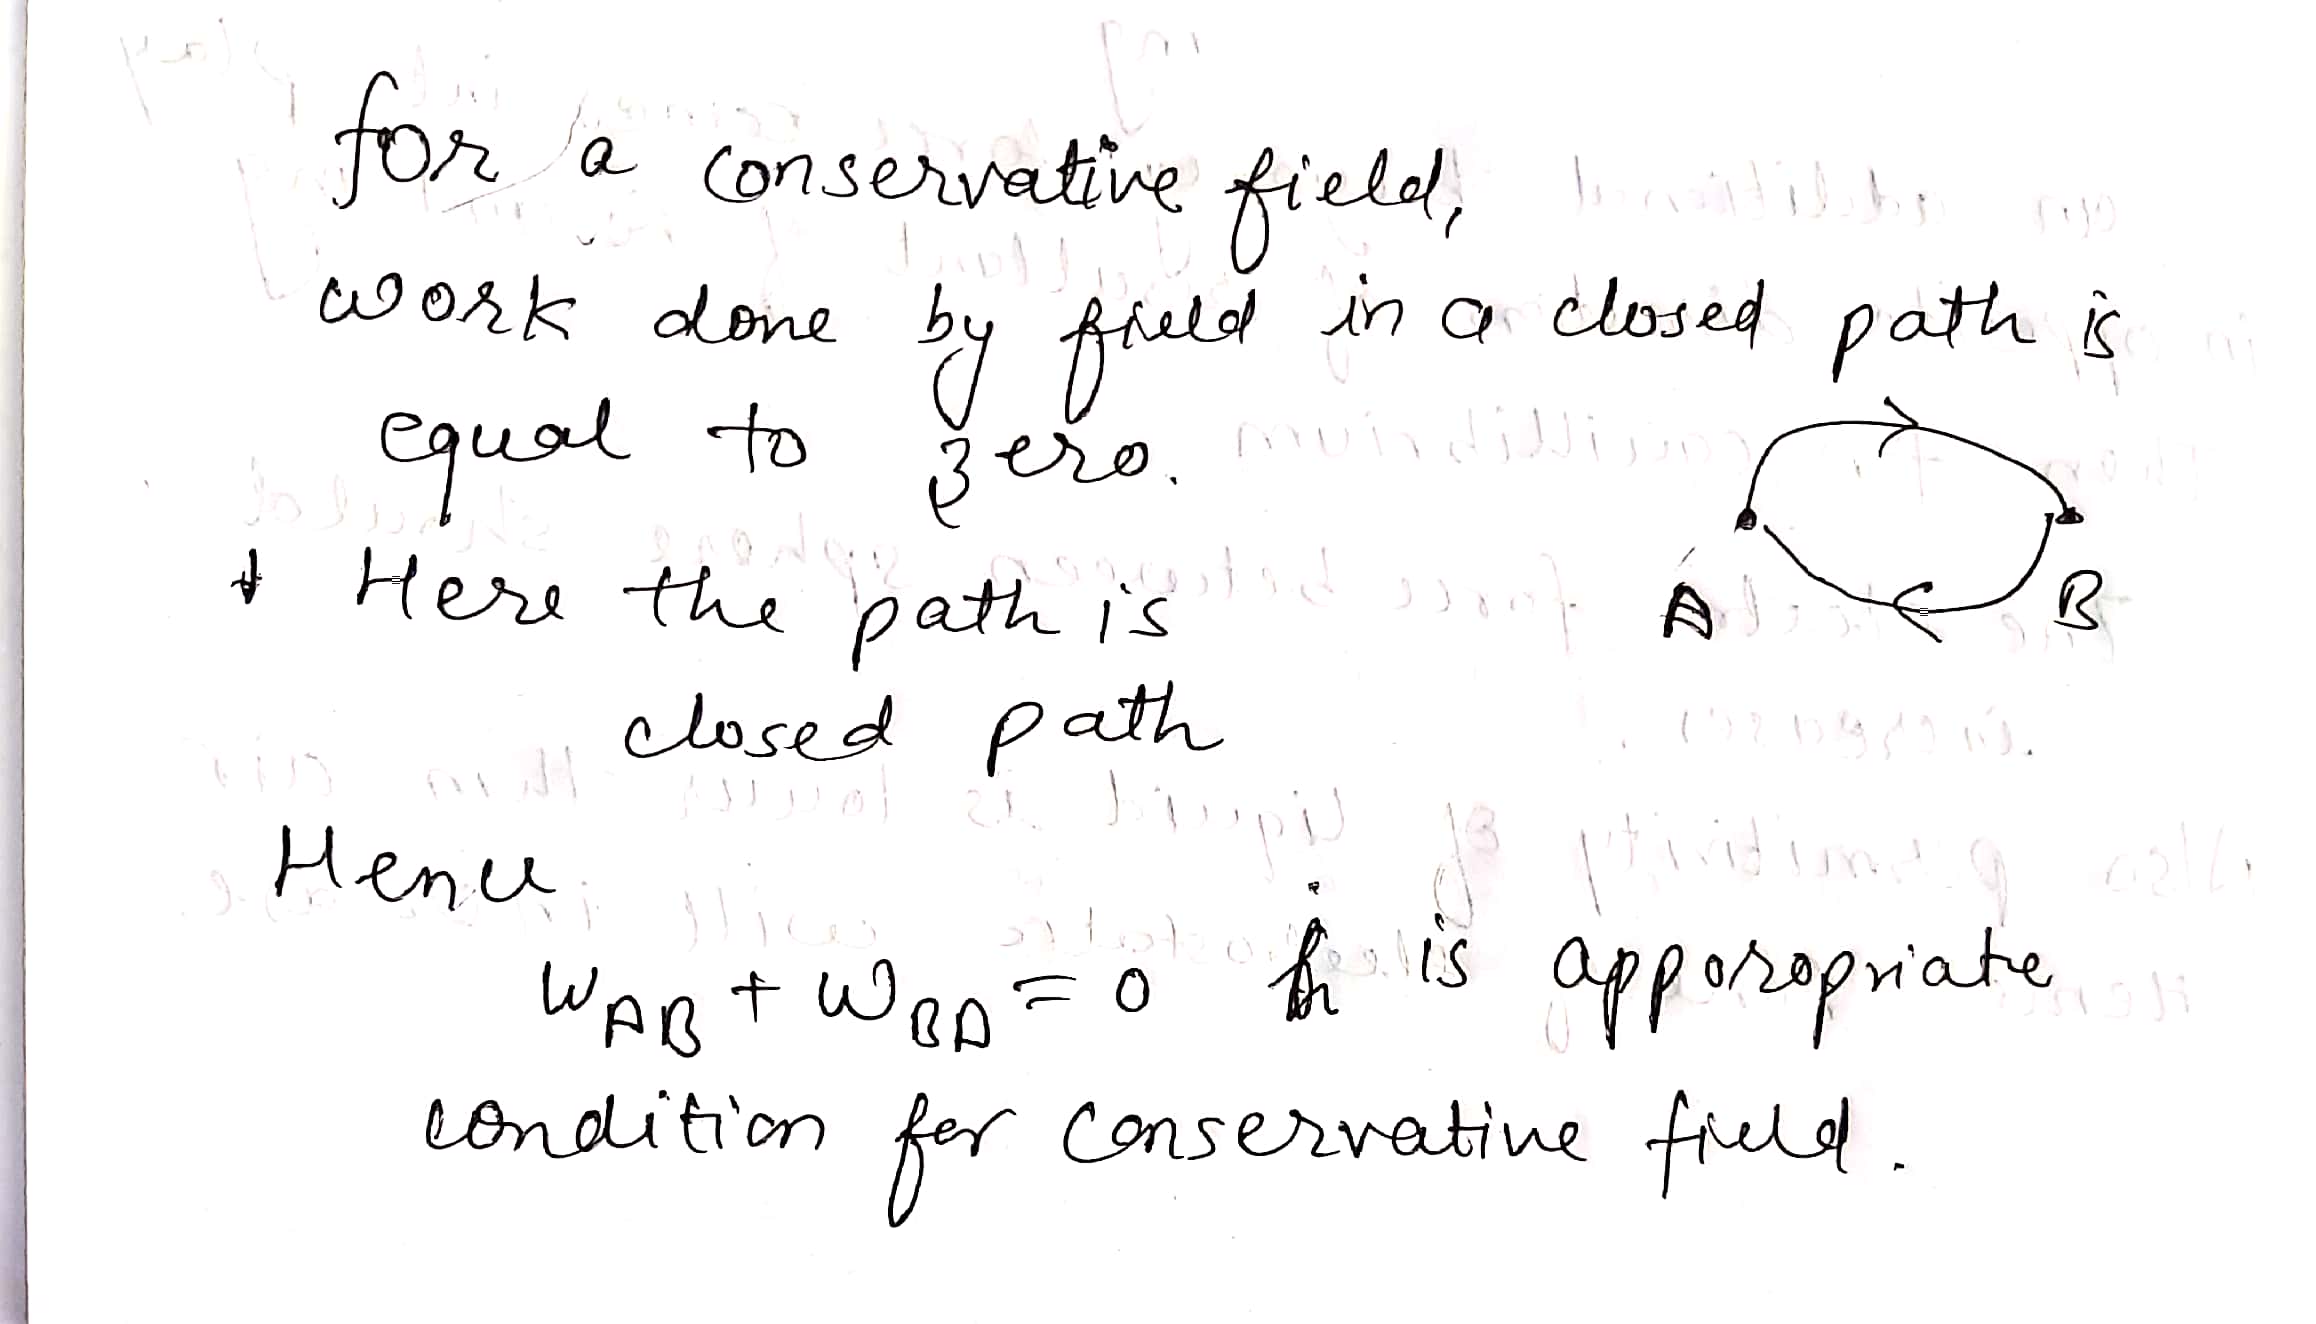 for a conservative field,
work done by field in a closed path is
equal to zero.
Here the path is
closed path
A B
Hence
WAB + WBA = 0 is apporopriate
condition for conservative field.